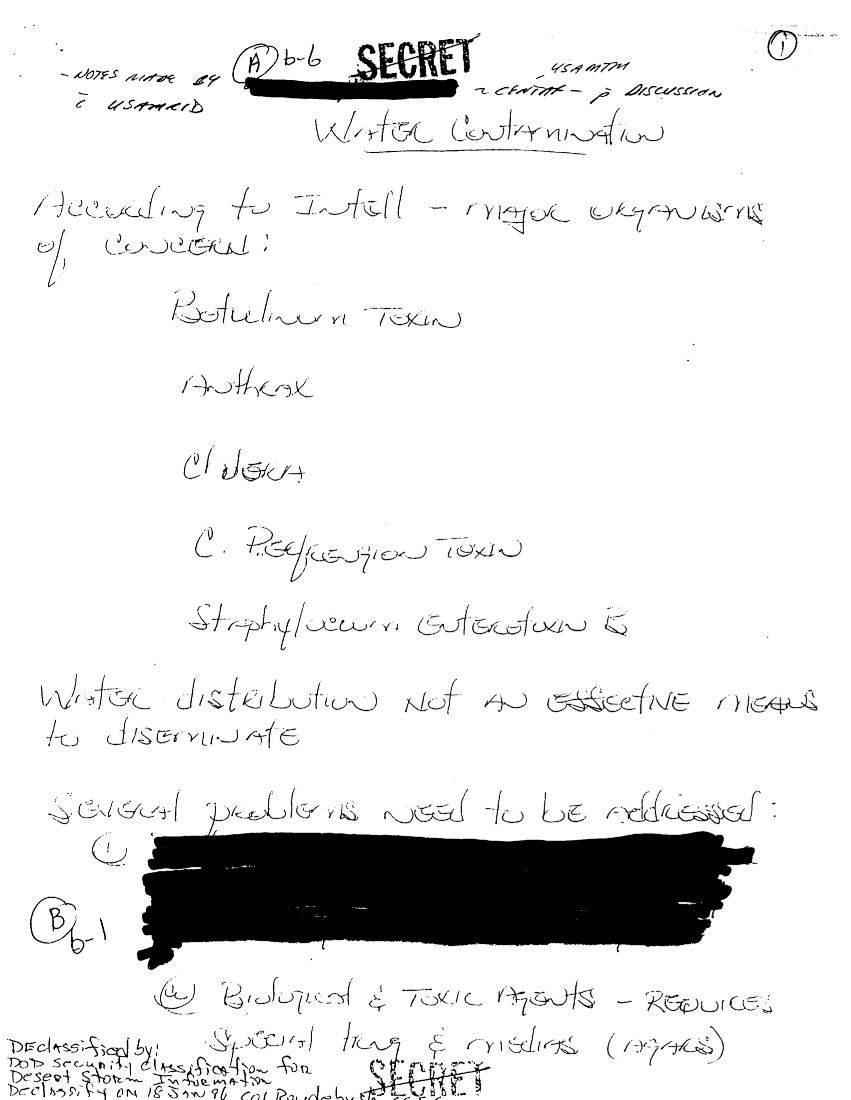 A b-6 SECRET 1
- NOTES MADE BY USAMTM
c̄ USAMRID CENTAF - p̄ DISCUSSION
Water Contamination
According to Intell - major organisms
of concern:
Botulinum Toxin
Anthrax
Cholera
C. Perfrengion Toxin
Staphylococcum Enterotoxin B
Water distribution not an effective means
to diseminate
Several problems need to be addressed:
1
B b-1
2 Biological & Toxic Agents - Requires
Special trng & medias (Agars)
DEclassified by:
DoD Security Classification for
Desert Storm Information
DEclassify ON 18 JAN 96
SECRET